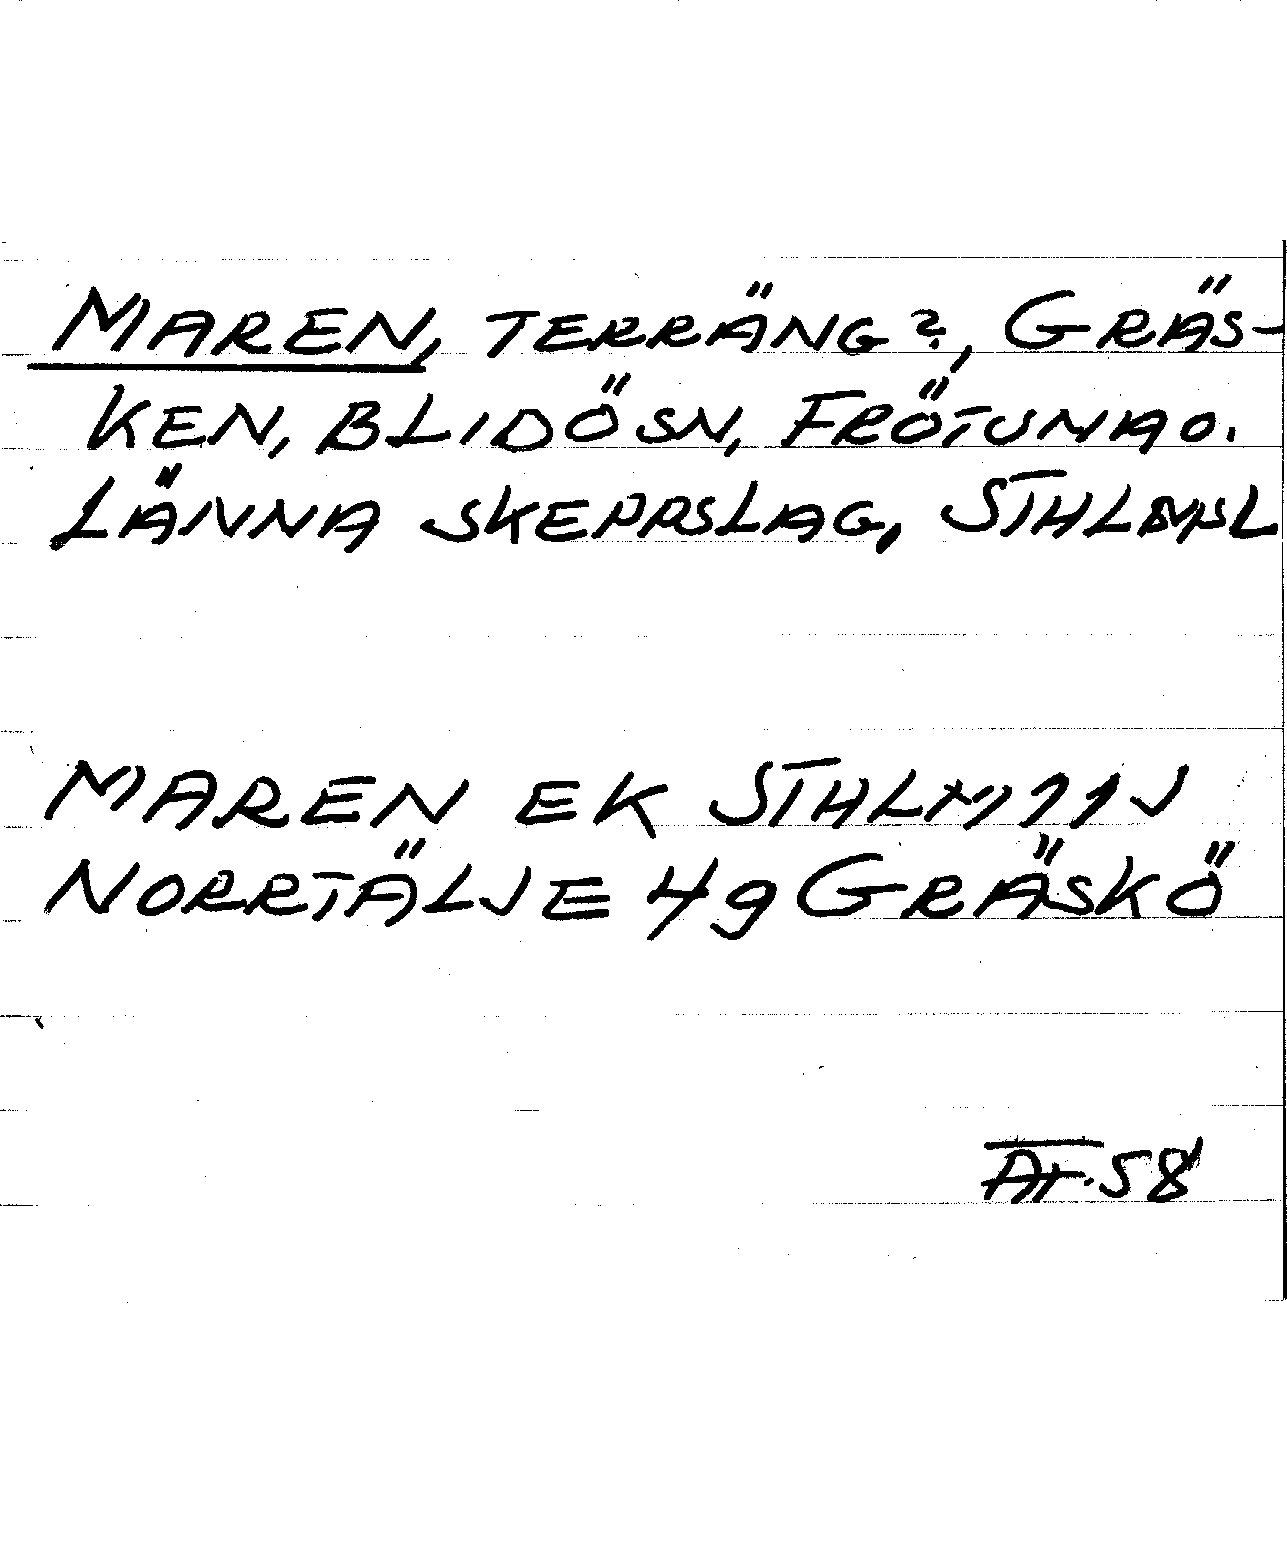 MAREN, TERRÄNG?, GRÄS-
KEN, BLIDÖ SN, FRÖTUNA O.
LÄNNA SKEPPSLAG, STHLMSL
MAREN EK STHLM 11J
NORRTÄLJE 49 GRÄSKÖ
58